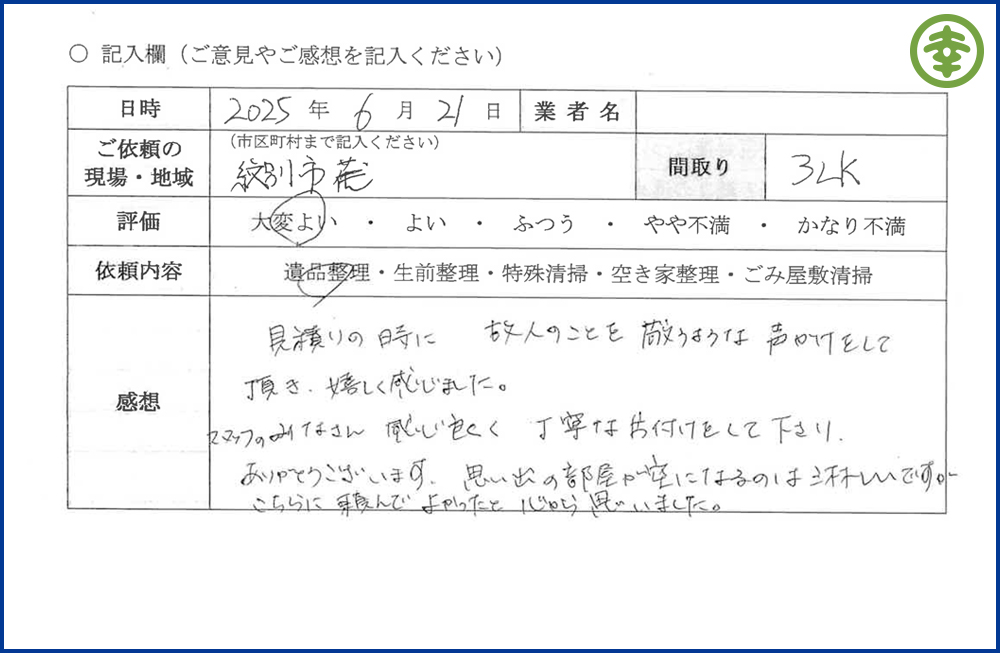 幸
○ 記入欄（ご意見やご感想を記入ください）
日時 2025 年 6 月 21 日 業者名
ご依頼の現場・地域 （市区町村まで記入ください） 間取り 3LK
紋別市
評価 大変よい ・ よい ・ ふつう ・ やや不満 ・ かなり不満
依頼内容 遺品整理・生前整理・特殊清掃・空き家整理・ごみ屋敷清掃
感想
見積りの時に 故人のことを敬うような声かけをして
頂き、嬉しく感じました。
スタッフのみなさん 感じ良く 丁寧な片付けをして下さり、
ありがとうございます。思い出の部屋が空になるのは淋しいですが
こちらに頼んでよかったと心から思いました。